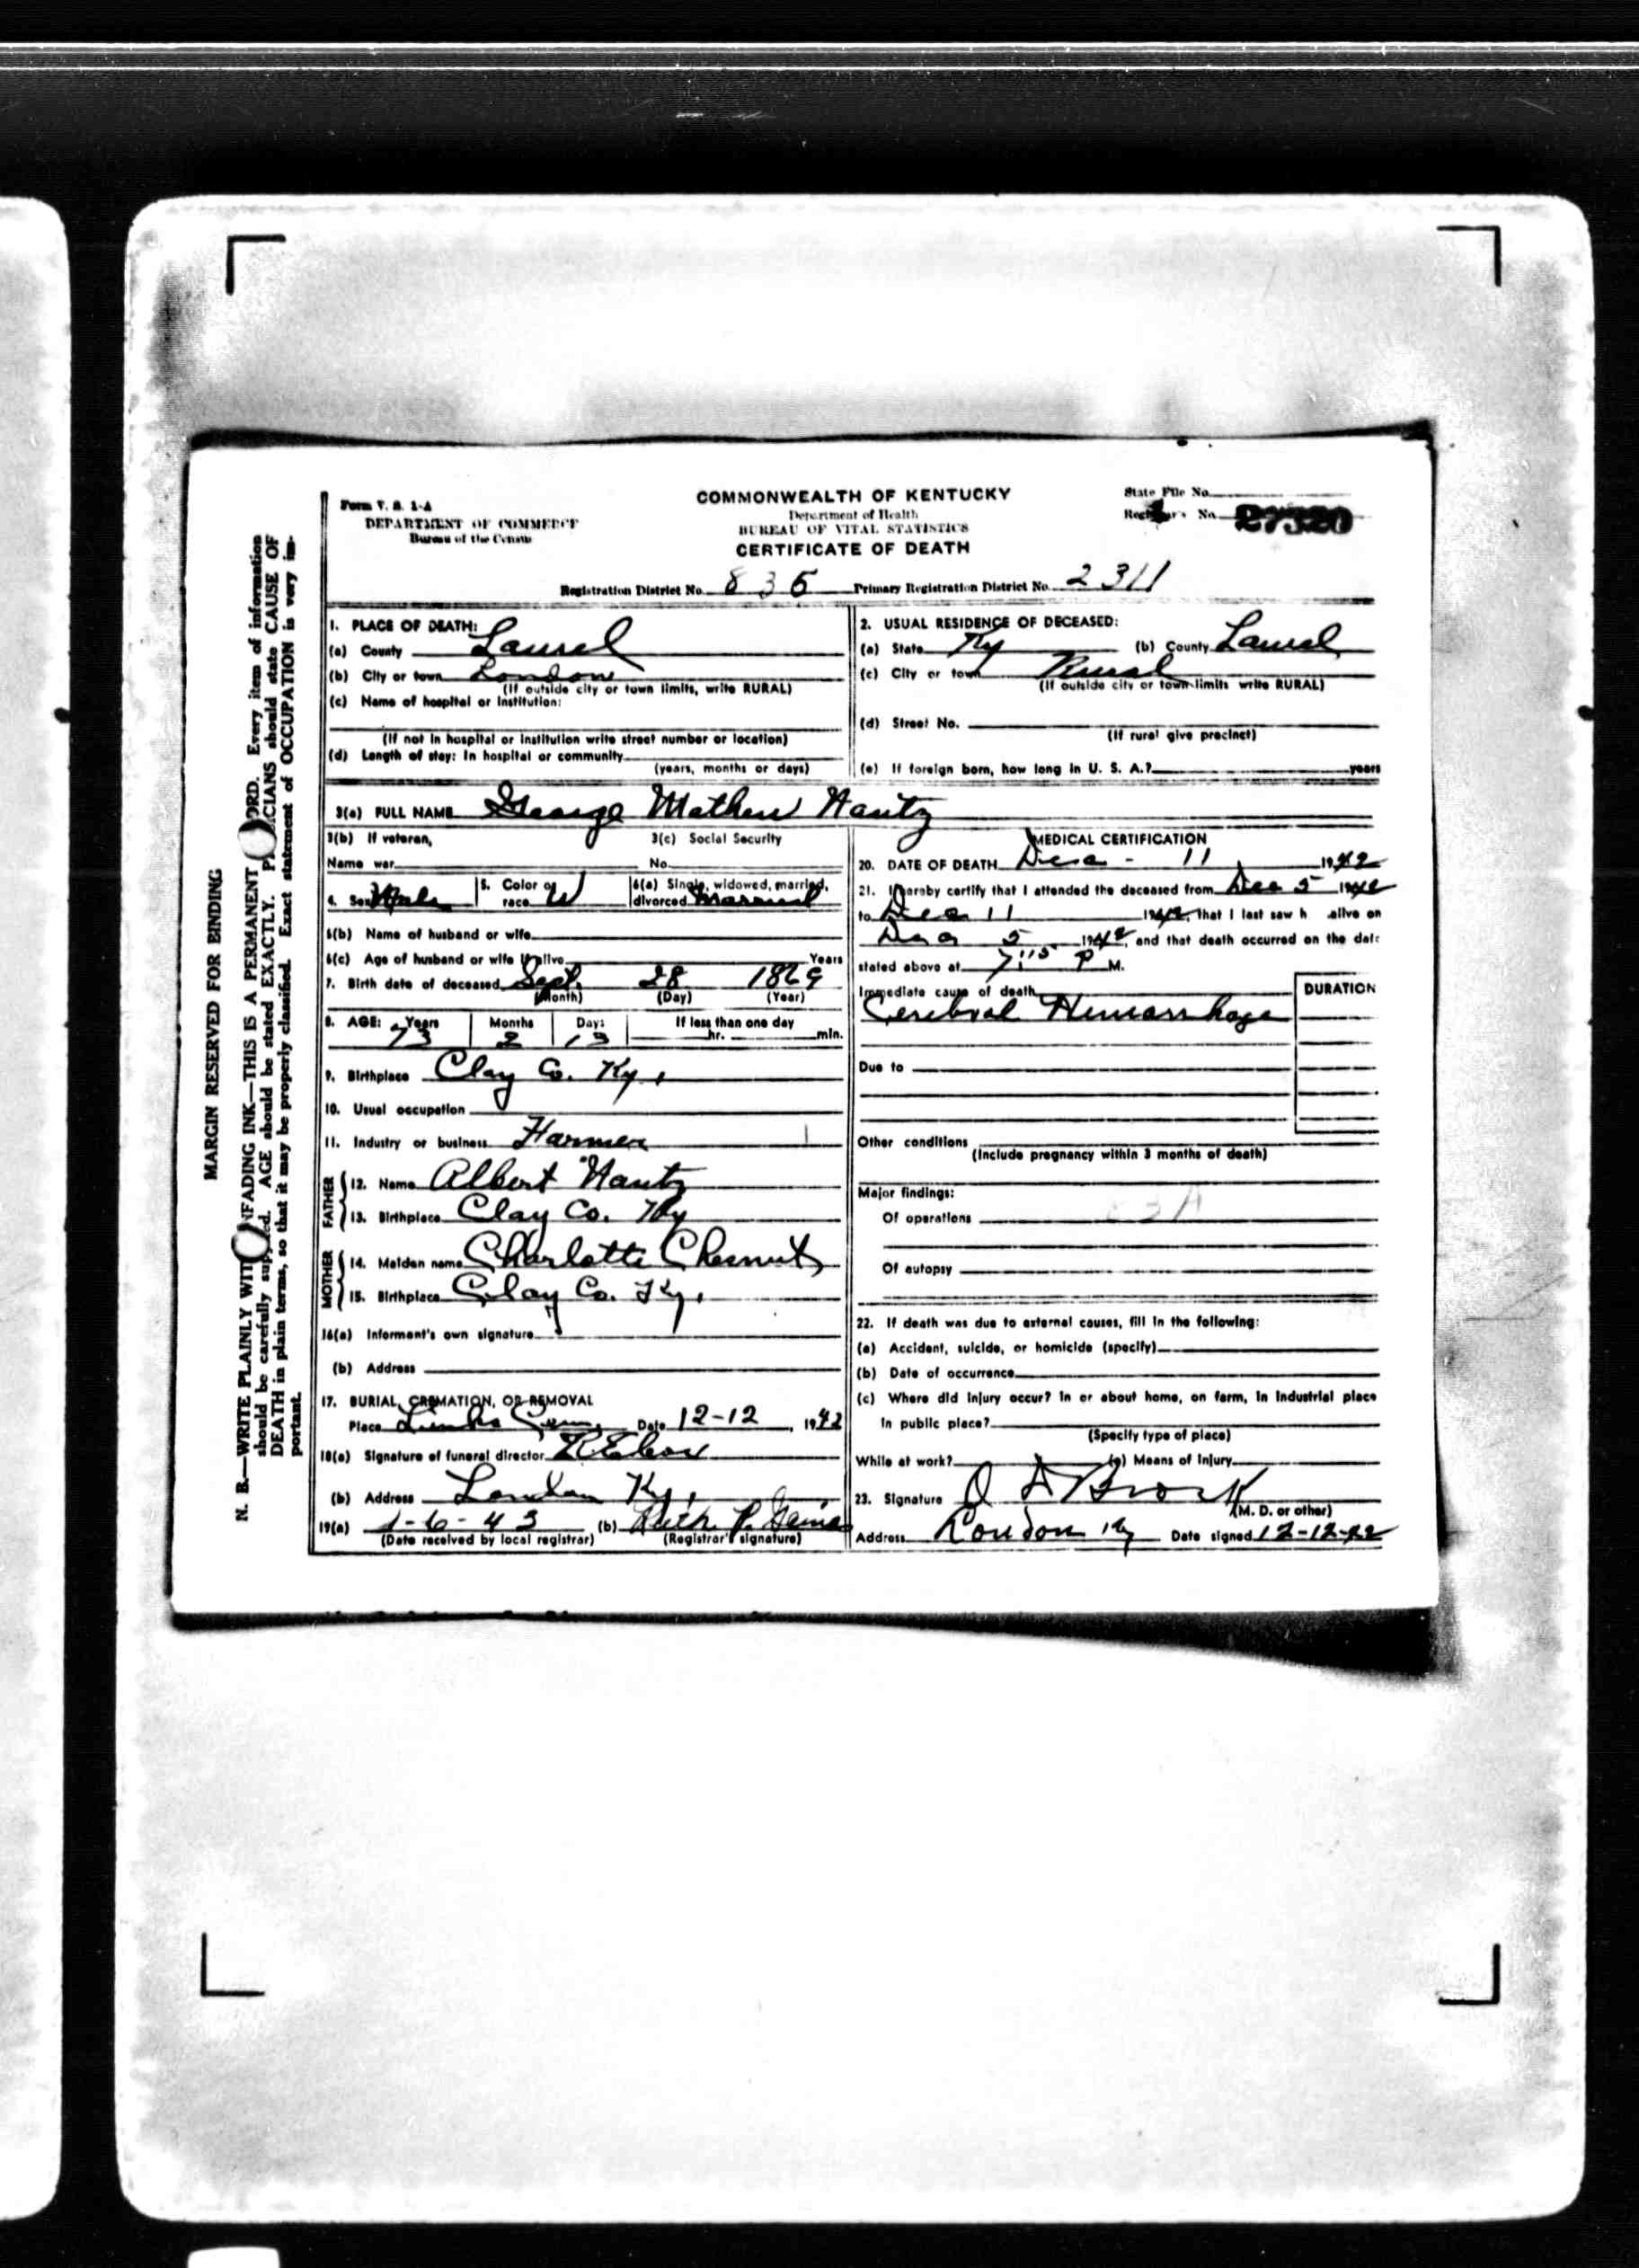 Form V. S. 1-A
DEPARTMENT OF COMMERCE
Bureau of the Census
COMMONWEALTH OF KENTUCKY
Department of Health
BUREAU OF VITAL STATISTICS
CERTIFICATE OF DEATH
State File No.
Registrar's No. 27320
Registration District No. 835 Primary Registration District No. 2311
MARGIN RESERVED FOR BINDING
N. B.—WRITE PLAINLY WITH UNFADING INK—THIS IS A PERMANENT RECORD. Every item of information
should be carefully supplied. AGE should be stated EXACTLY. PHYSICIANS should state CAUSE OF
DEATH in plain terms, so that it may be properly classified. Exact statement of OCCUPATION is very im-
portant.
1. PLACE OF DEATH:
(a) County Laurel
(b) City or town London
(If outside city or town limits, write RURAL)
(c) Name of hospital or institution:
(If not in hospital or institution write street number or location)
(d) Length of stay: In hospital or community
(years, months or days)
2. USUAL RESIDENCE OF DECEASED:
(a) State Ky (b) County Laurel
(c) City or town Rural
(If outside city or town limits write RURAL)
(d) Street No.
(If rural give precinct)
(e) If foreign born, how long in U. S. A.? years
3(a) FULL NAME George Mathew Hautz
3(b) If veteran, 3(c) Social Security
Name war No.
4. Sex Male 5. Color or race W 6(a) Single, widowed, married, divorced Married
6(b) Name of husband or wife
6(c) Age of husband or wife if alive Years
7. Birth date of deceased Sept. 28 1869
(Month) (Day) (Year)
8. AGE: Years Months Days If less than one day
73 2 13 hr. min.
9. Birthplace Clay Co. Ky.
10. Usual occupation
11. Industry or business Farmer
FATHER
12. Name Albert Hautz
13. Birthplace Clay Co. Ky
MOTHER
14. Maiden name Charlotte Chesnut
15. Birthplace Clay Co. Ky.
16(a) Informant's own signature
(b) Address
17. BURIAL, CREMATION, OR REMOVAL
Place Cem. Date 12-12, 1942
18(a) Signature of funeral director
(b) Address London Ky.
19(a) 1-6-43 (b) Ruth P.
(Date received by local registrar) (Registrar's signature)
MEDICAL CERTIFICATION
20. DATE OF DEATH Dec - 11 1942
21. I hereby certify that I attended the deceased from Dec 5 1942
to Dec 11 1942, that I last saw h alive on
Dec 5 1942, and that death occurred on the date
stated above at 7:15 P M.
Immediate cause of death
Cerebral Hemorrhage
DURATION
Due to
Other conditions
(Include pregnancy within 3 months of death)
Major findings:
Of operations 83A
Of autopsy
22. If death was due to external causes, fill in the following:
(a) Accident, suicide, or homicide (specify)
(b) Date of occurrence
(c) Where did injury occur? In or about home, on farm, in industrial place
in public place?
(Specify type of place)
While at work? (e) Means of Injury
23. Signature O D Brock
(M. D. or other)
Address London Ky Date signed 12-12-42